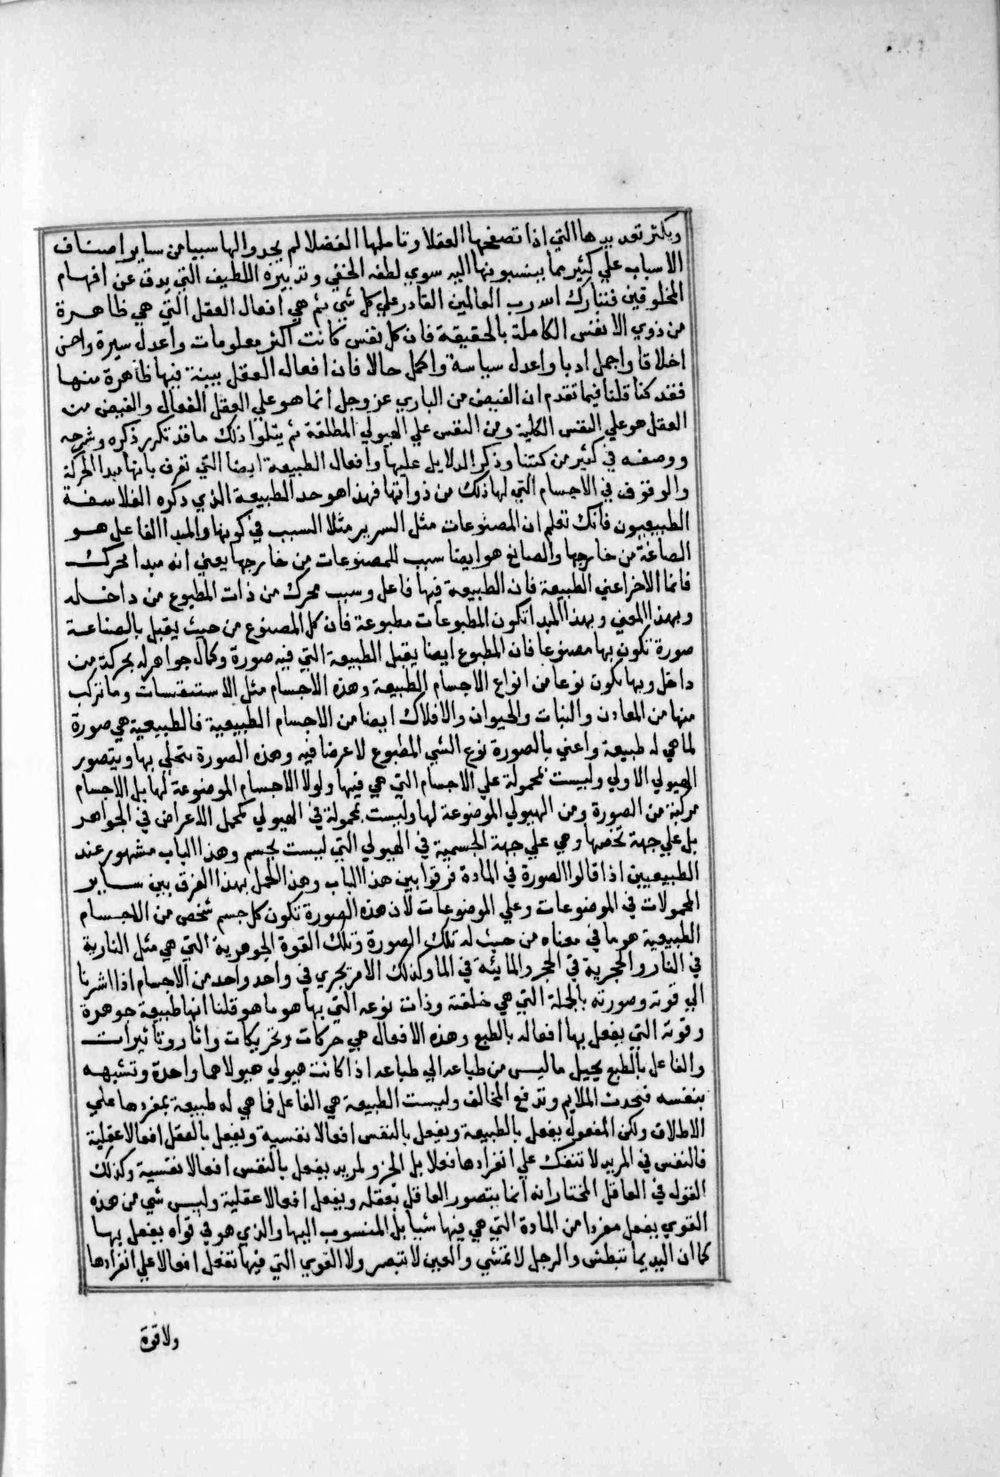 ويكثر تعديدها التي اذا تصفحها العقلا وتاملها الفضلا لم يجدوا لها سبيا من ساير اصناف
الاسباب علي كثير مما ينسبونها اليه سوي لطفه الخفي وتدبيره اللطيف التي يدق عن افهام
المخلوقين فتبارك الله رب العالمين القادر علي كل شي ثم هي افعال العقل التي هي ظاهرة
من ذوي الانفس الكاملة بالحقيقة فان كل نفس كانت اكثر معلومات واعدل سيرة واحسن
اخلاقا واجمل ادبا واعدل سياسة واكمل حالا فان افعال العقل بينة فيها ظاهرة منها
فقد كنا قلنا فيما تقدم ان الفيض من الباري عز وجل انما هو علي العقل الفعال والفيض من
العقل هو علي النفس الكلية ومن النفس علي الهيولي المطلقة ثم يتلوا ذلك ما قد تكرر ذكره وشرحه
ووصفه في كثير من كتبنا وذكر الدلايل عليها وافعال الطبيعة ايضا التي تعرف بانها مبدا الحركة
والوقوف في الاجسام التي لها ذلك من ذواتها فهذا هو حد الطبيعة الذي ذكره الفلاسفة
الطبيعيون فانك تعلم ان المصنوعات مثل السرير مثلا السبب في كونها والمبدا الفاعل هو
الصناعة من خارجها والصانع هو ايضا سبب للمصنوعات من خارجها يعني انه مبدا محرك
فاما الاخر اعني الطبيعة فان الطبيعة فيها فاعل وسبب محرك من ذات المطبوع من داخله
وبهذا المعني وبهذا المبدا تكون المطبوعات مطبوعة فان كل المصنوع من حيث يقبل بالصناعة
صورة تكون بها مصنوعا فان المطبوع ايضا يقبل الطبيعة التي فيه صورة وكمال جواهر له بحركة من
داخل وبها يكون نوعا من انواع الاجسام الطبيعة وهذه الاجسام مثل الاستقسات وما تركب
منها من المعادن والنبات والحيوان والافلاك ايضا من الاجسام الطبيعية فالطبيعية هي صورة
لما هي له طبيعة واعني بالصورة نوع الشي المطبوع لا عرضا فيه وهذه الصورة تتحلي بها ويتصور
الهيولي الاولي وليست بمحمولة علي الاجسام التي هي فيها ولولا الاجسام الموضوعة لها بل الاجسام
مركبة من الصورة ومن الهيولي الموضوعة لها وليست بمحمولة في الهيولي كحمل الاعراض في الجواهر
بل علي جهة تخصها وهي علي جهة الجسمية في الهيولي التي ليست بجسم وهذا الباب مشهور عند
الطبيعيين اذا قالوا الصورة في المادة فرقوا بين هذا الباب وهذا الحمل بهذا الفرق بين ساير
المحمولات في الموضوعات وعلي الموضوعات لان هذه الصورة تكون كل جسم شخص من الاجسام
الطبيعية هو ما في معناه من حيث له تلك الصورة وتلك القوة الجوهرية التي هي مثل النارية
في النار والحجرية في الحجر والمايية في الما وكذلك الامر يجري في واحد واحد من الاجسام اذا اشرنا
الي قوته وصورته بالجملة التي هي خلقته وذات نوعه التي بها هو ما هو قلنا انها طبيعة جوهرة
وقوته التي يفعل بها افعاله بالطبع وهذه الافعال هي حركات وتحريكات واثار وتاثيرات
والفاعل بالطبع يحيل ما ليس من طباعه الي طباعه اذا كانت هيولي هيولاهما واحدة وتشبهه
بنفسه فيحدث الملايم وتدفع المخالف وليست الطبيعة هي الفاعل فما هي له طبيعة بمفردها علي
الاطلاق ولكن المفعول يفعل بالطبيعة ويفعل بالنفس افعالا نفسية ويفعل بالعقل افعالا عقلية
فالنفس في المريد لا تنفك علي انفرادها فعلا بل الجزو لمريد يفعل بالنفس افعالا نفسية وكذلك
القوله في العاقل المختار انه انما يتصور العاقل بعقله ويفعل افعالا عقلية وليس شي من هذه
القوي يفعل مفردا من المادة التي هي فيها شيا بل المنسوب اليها والذي هو في قواه يفعل بها
كما ان اليد بما تبطش والرجل لا تمشي والعين لا تبصر ولا القوي التي فيها تفعل افعالا علي انفرادها
ولا قوة